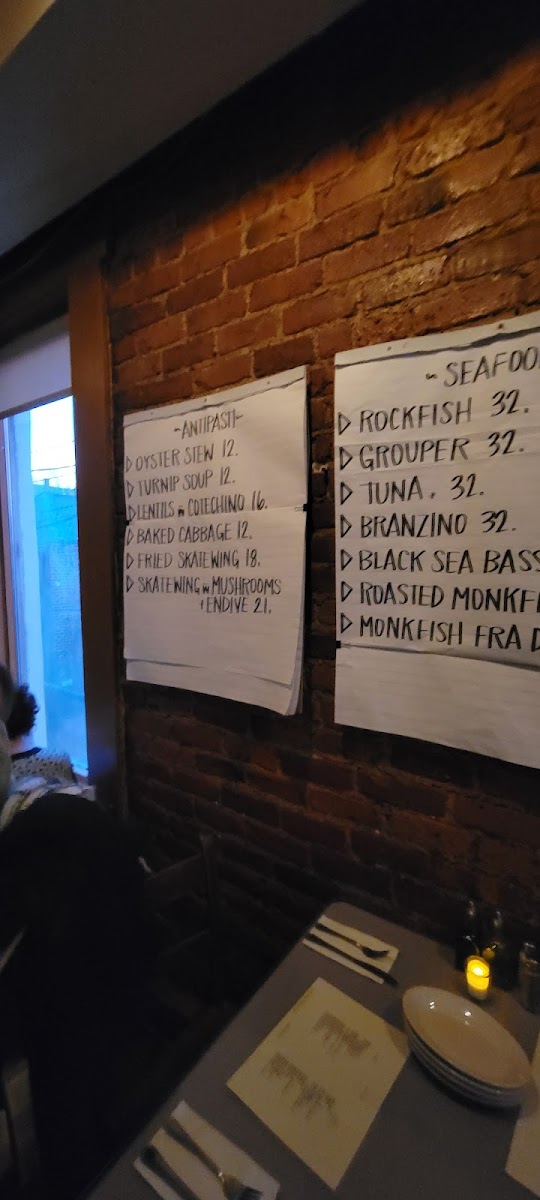 ~ANTIPASTI~
▷ OYSTER STEW 12.
▷ TURNIP SOUP 12.
▷ LENTILS w COTECHINO 16.
▷ BAKED CABBAGE 12.
▷ FRIED SKATEWING 18.
▷ SKATEWING w MUSHROOMS
+ ENDIVE 21.
~ SEAFOO
▷ ROCKFISH 32.
▷ GROUPER 32.
▷ TUNA. 32.
▷ BRANZINO 32.
▷ BLACK SEA BASS
▷ ROASTED MONKF
▷ MONKFISH FRA D